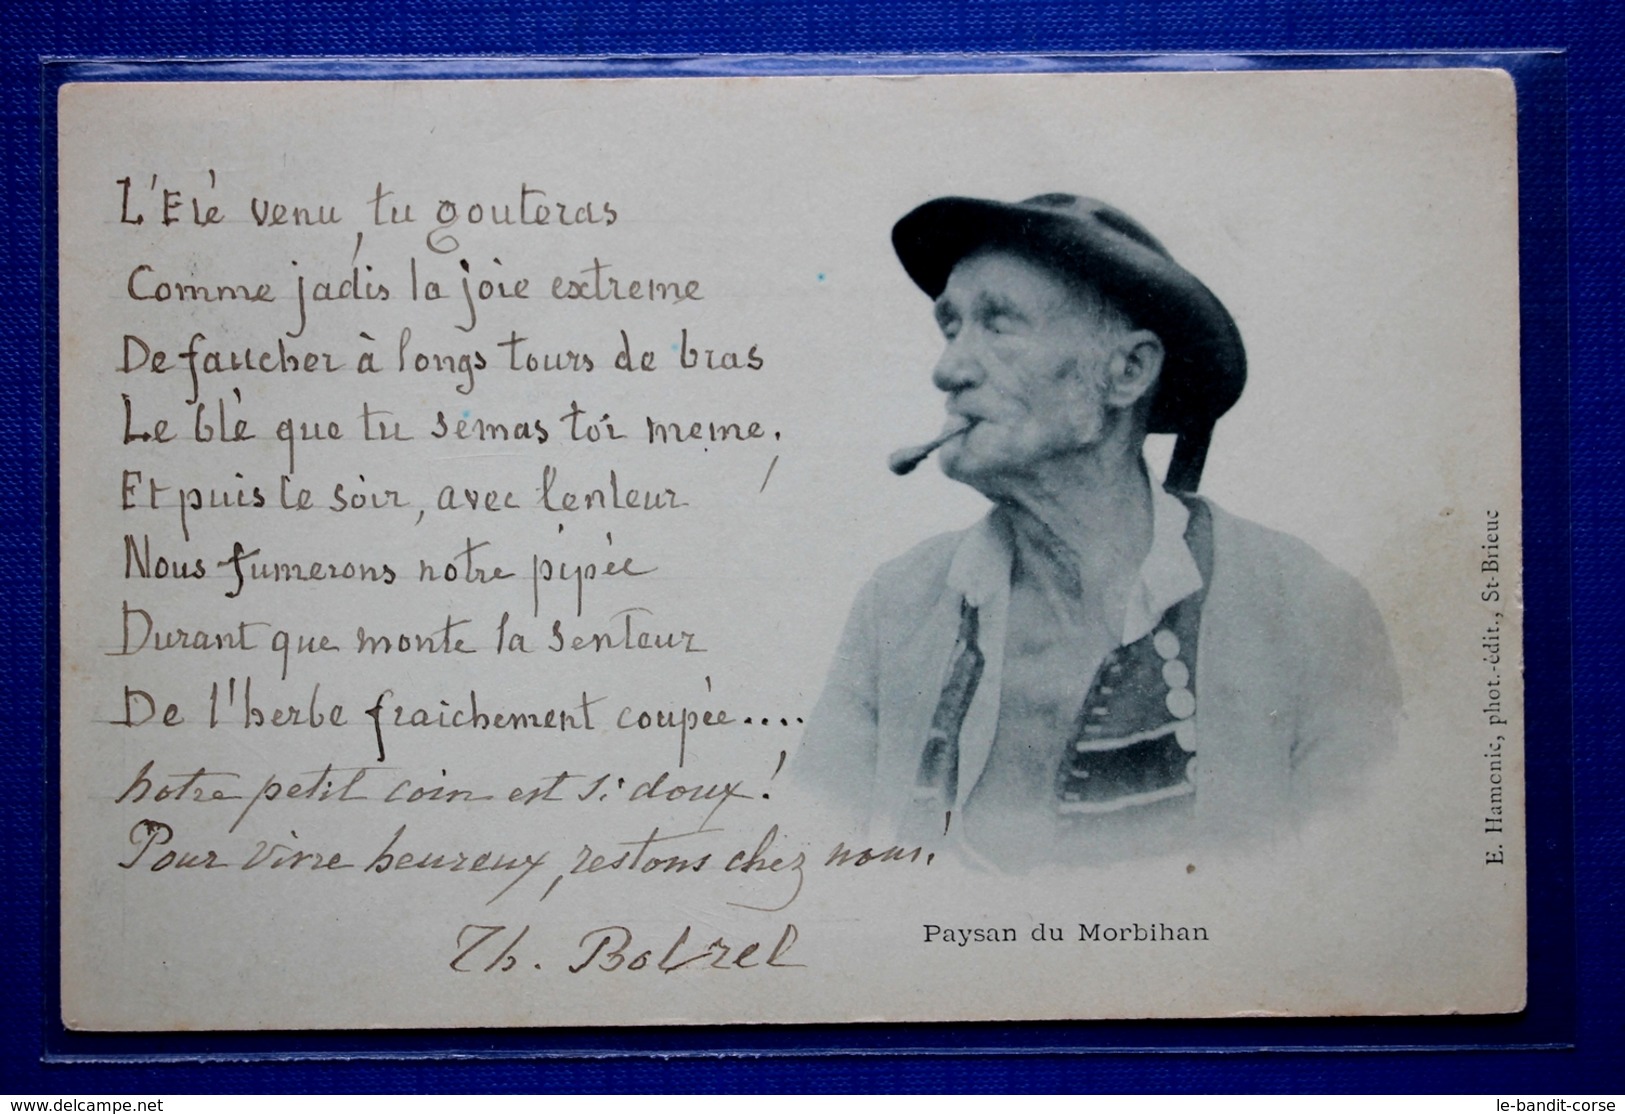 L'Eté venu, tu gouteras
Comme jadis la joie extreme
De faucher à longs tours de bras
Le blé que tu semas toi meme!
Et puis le soir, avec lenteur
Nous fumerons notre pipée
Durant que monte la senteur
De l'herbe fraichement coupée....
notre petit coin est si doux!
Pour vivre heureux, restons chez nous!
Th. Botrel
Paysan du Morbihan
E. Hamonic, phot.-édit., St-Brieuc
www.delcampe.net
le-bandit-corse